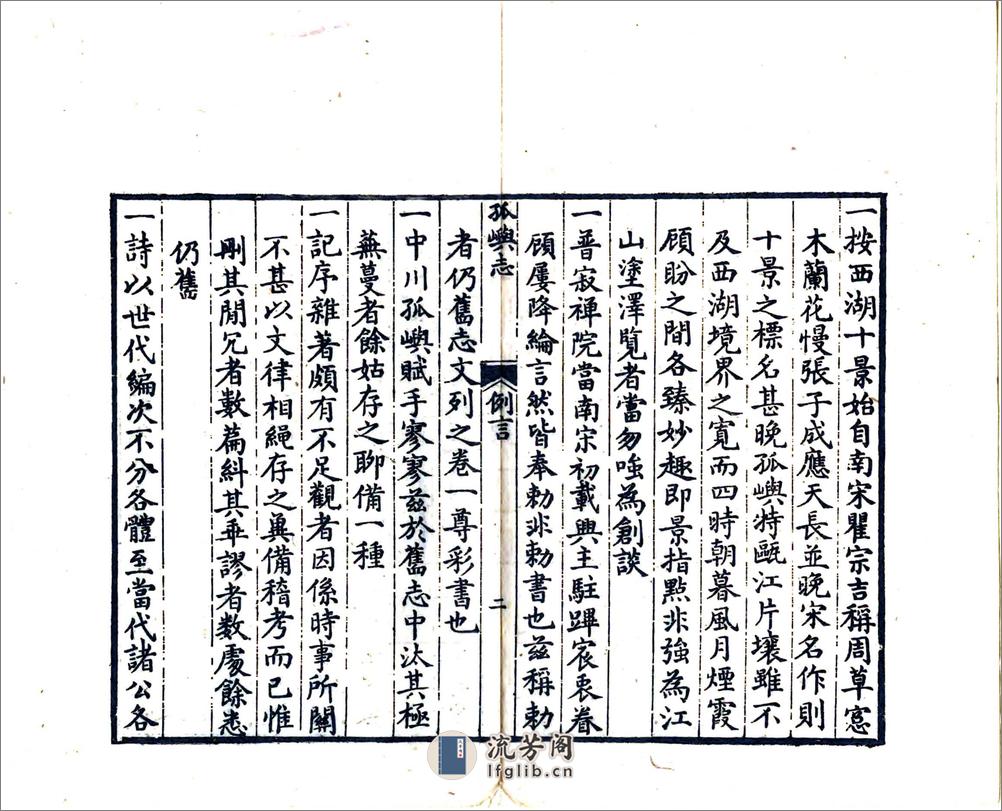 一按西湖十景始自南宋瞿宗吉稱周草窓
木蘭花慢張子成應天長並晚宋名作則
十景之標名甚晚孤嶼特甌江片壤雖不
及西湖境界之寬而四時朝暮風月煙霞
顧盼之間各臻妙趣即景指點非強為江
山塗澤覽者當勿嗤為創談
一普寂禅院當南宋初載輿主駐蹕宸衷眷
顧屢降綸言然皆奉勅非勅書也茲稱勅
孤嶼志
例言
二
者仍舊志文列之卷一尊彩書也
一中川孤嶼賦手寥寥茲於舊志中汰其極
蕪蔓者餘姑存之聊備一種
一記序雜著頗有不足觀者因係時事所關
不甚以文律相繩存之兾備稽考而已惟
刪其閒冗者數篇糾其乖謬者数處餘悉
仍舊
一詩以世代編次不分各體至當代諸公各
流芳阁
lfglib.cn